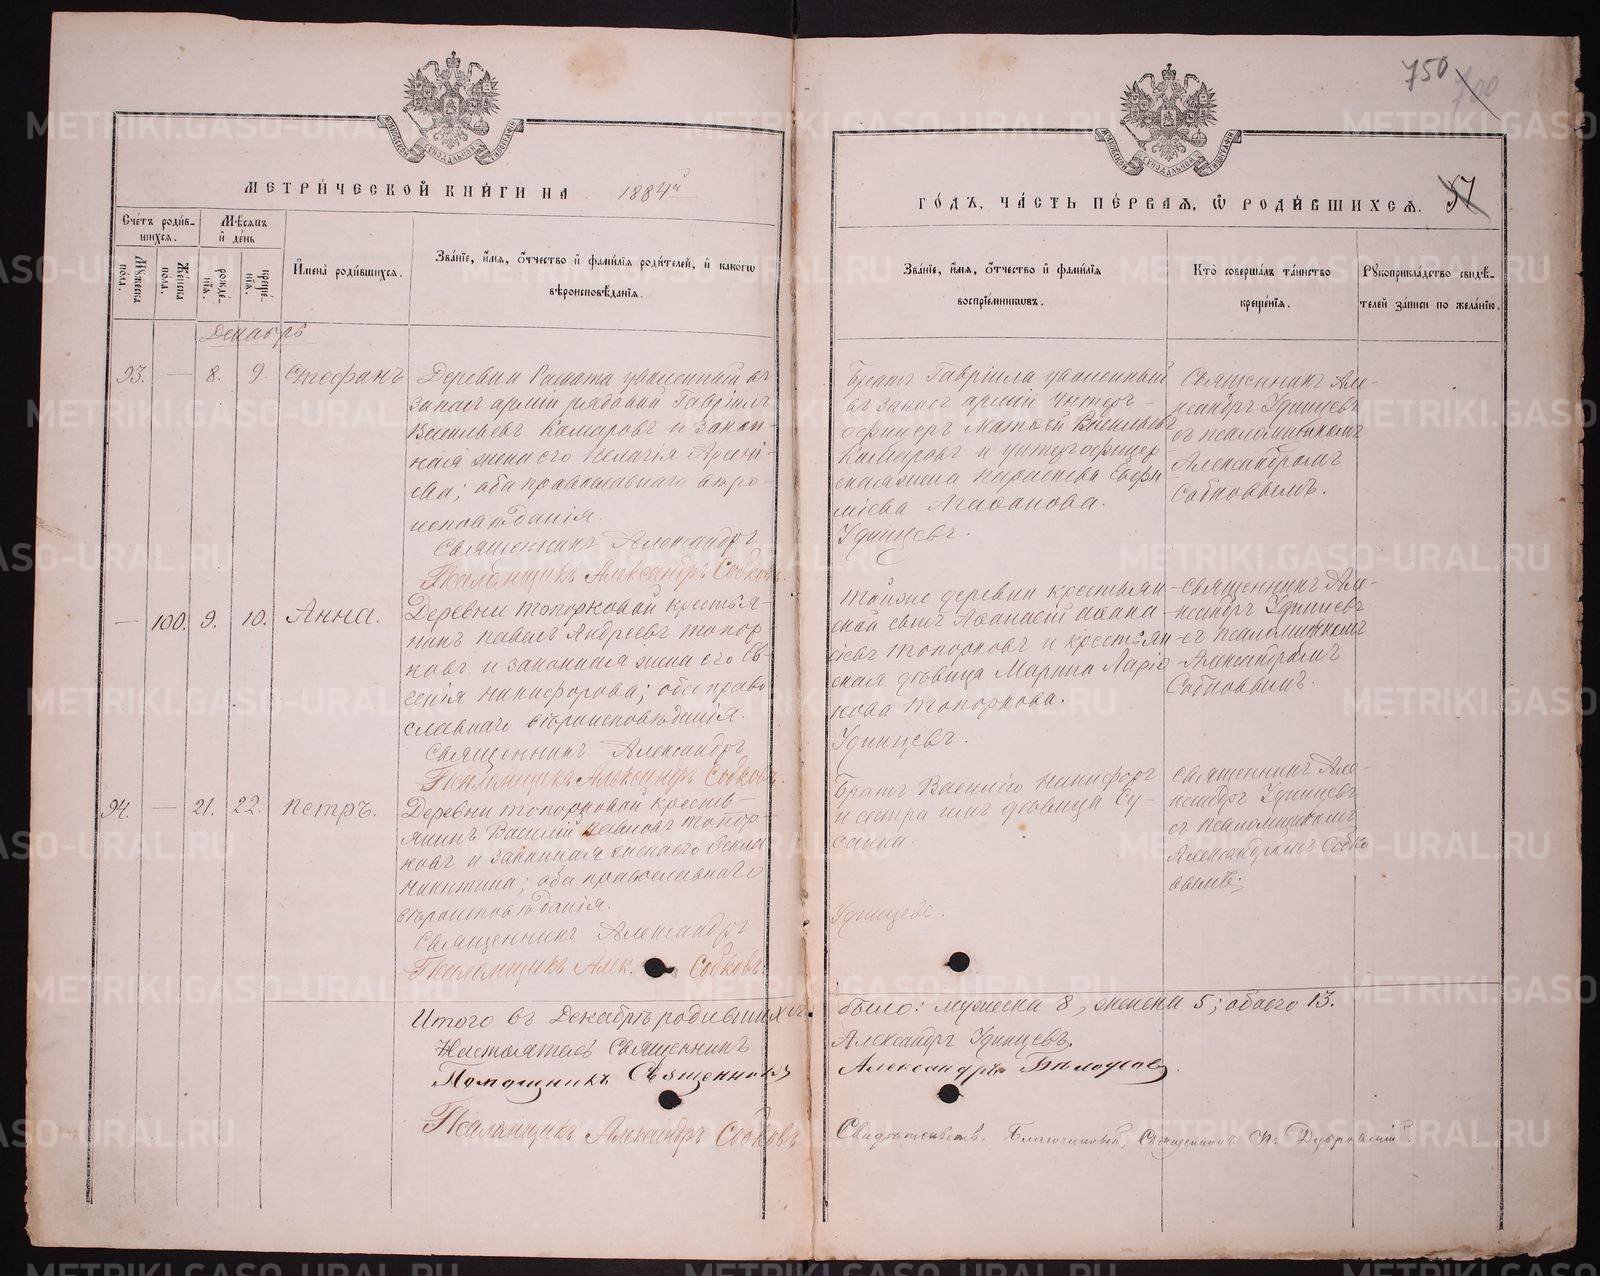 750
700
МЕТРИ́ЧЕСКОЙ КНИ́ГИ НА 1884й
ГО́ДЪ, ЧА́СТЬ ПЕ́РВАЯ, Ѡ РОДИ́ВШИХСЯ. 57
Сче́тъ роди́в-
шихся.
Мѣсяцъ
и де́нь
Му́жеска по́ла.
Же́нска пола.
рожде́-
нїя.
креще́-
нїя.
Имена̀ роди́вшихся.
Зва́нїе, и́мя, о́тчество и фами́лїя роди́телей, и како́гѡ
вѣроисповѣ́данїя.
Зва́нїе, и́мя, о́тчество и фами́лїя
воспрїе́мниковъ.
Кто̀ соверша́лъ та́инство
креще́нїя.
Рукоприкла́дство свидѣ́-
телей за́писи по жела́нїю.
Декабрь
93. — 8. 9. Стефанъ
Деревни Раската уволенный въ
запасъ армїи рядовой Гаврїилъ
Васильевъ Камаровъ и закон-
ная жена его Пелагїя Арсенї-
ева; оба православнаго вѣро-
исповѣданїя.
Священникъ Александръ
Псаломщикъ Александръ Собковъ.
Братъ Гаврїила уволенный
въ запасъ армїи унтеръ-
офицеръ Матѳей Васильевъ
Камаровъ и унтеръофицер
ская жена Параскева Евфи
мїева Агафонова.
Удинцевъ.
Священникъ Але-
ксандръ Удинцевъ
съ псаломщикомъ
Александромъ
Собковымъ.
— 100. 9. 10. Анна.
Деревни Топорковой крестья-
нинъ Павелъ Андреевъ Топор
ковъ и законная жена его Ев-
генїя Никифорова; оба право
славнаго вѣроисповѣданїя.
Священникъ Александръ
Псаломщикъ Александръ Собковъ.
Тойже деревни крестьян
скїй сынъ Аѳанасїй
Топорковъ и крестьян
ская дѣвица Марина Ларїо
нова Топоркова.
Удинцевъ.
Священникъ Але-
ксандръ Удинцевъ
съ псаломщикомъ
Александромъ
Собковымъ.
94. — 21. 22. Петръ.
Деревни Топорковой кресть-
янинъ Василїй Павловъ Топор-
ковъ и законная жена его Ѳекла
Никитина; оба православнаго
вѣроисповѣданїя.
Священникъ Александръ
Псаломщикъ Алек. Собковъ
Братъ Василїю Никифоръ
и сестра имъ дѣвица Су-
санна.
Удинцевъ.
Священникъ Але-
ксандръ Удинцевъ
съ псаломщикомъ
Александромъ Собко
вымъ;
Итого въ Декабрѣ родившихся
было: мужеска 8, женска 5; обоего 13.
Настоятель Священникъ
Александръ Удинцевъ.
Помощникъ Священникъ
Александръ Бѣлоусовъ.
Псаломщикъ Александръ Собковъ
Свидѣтельств. Благочинный, Священникъ Н. Дубровскїй.